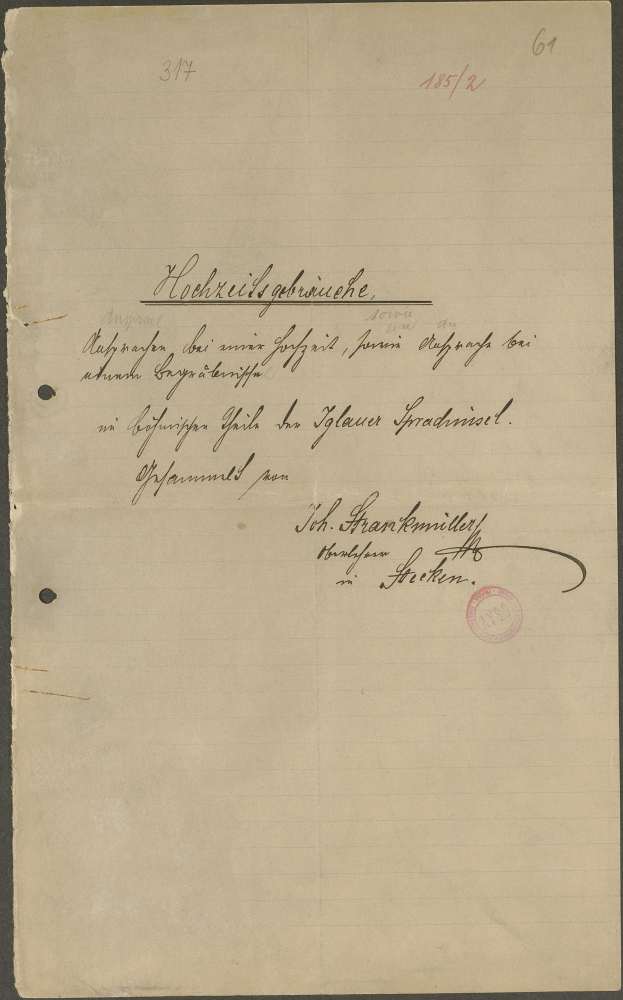 61
317
185/2
Hochzeitsgebräuche,
sowie
Ansprachen bei einer Hochzeit, sowie Ansprache bei
einem Begräbnisse
im böhmischen Theile der Iglauer Sprachinsel.
Gesammelt von
Joh. Strankmüller
Oberlehrer
in Stecken.